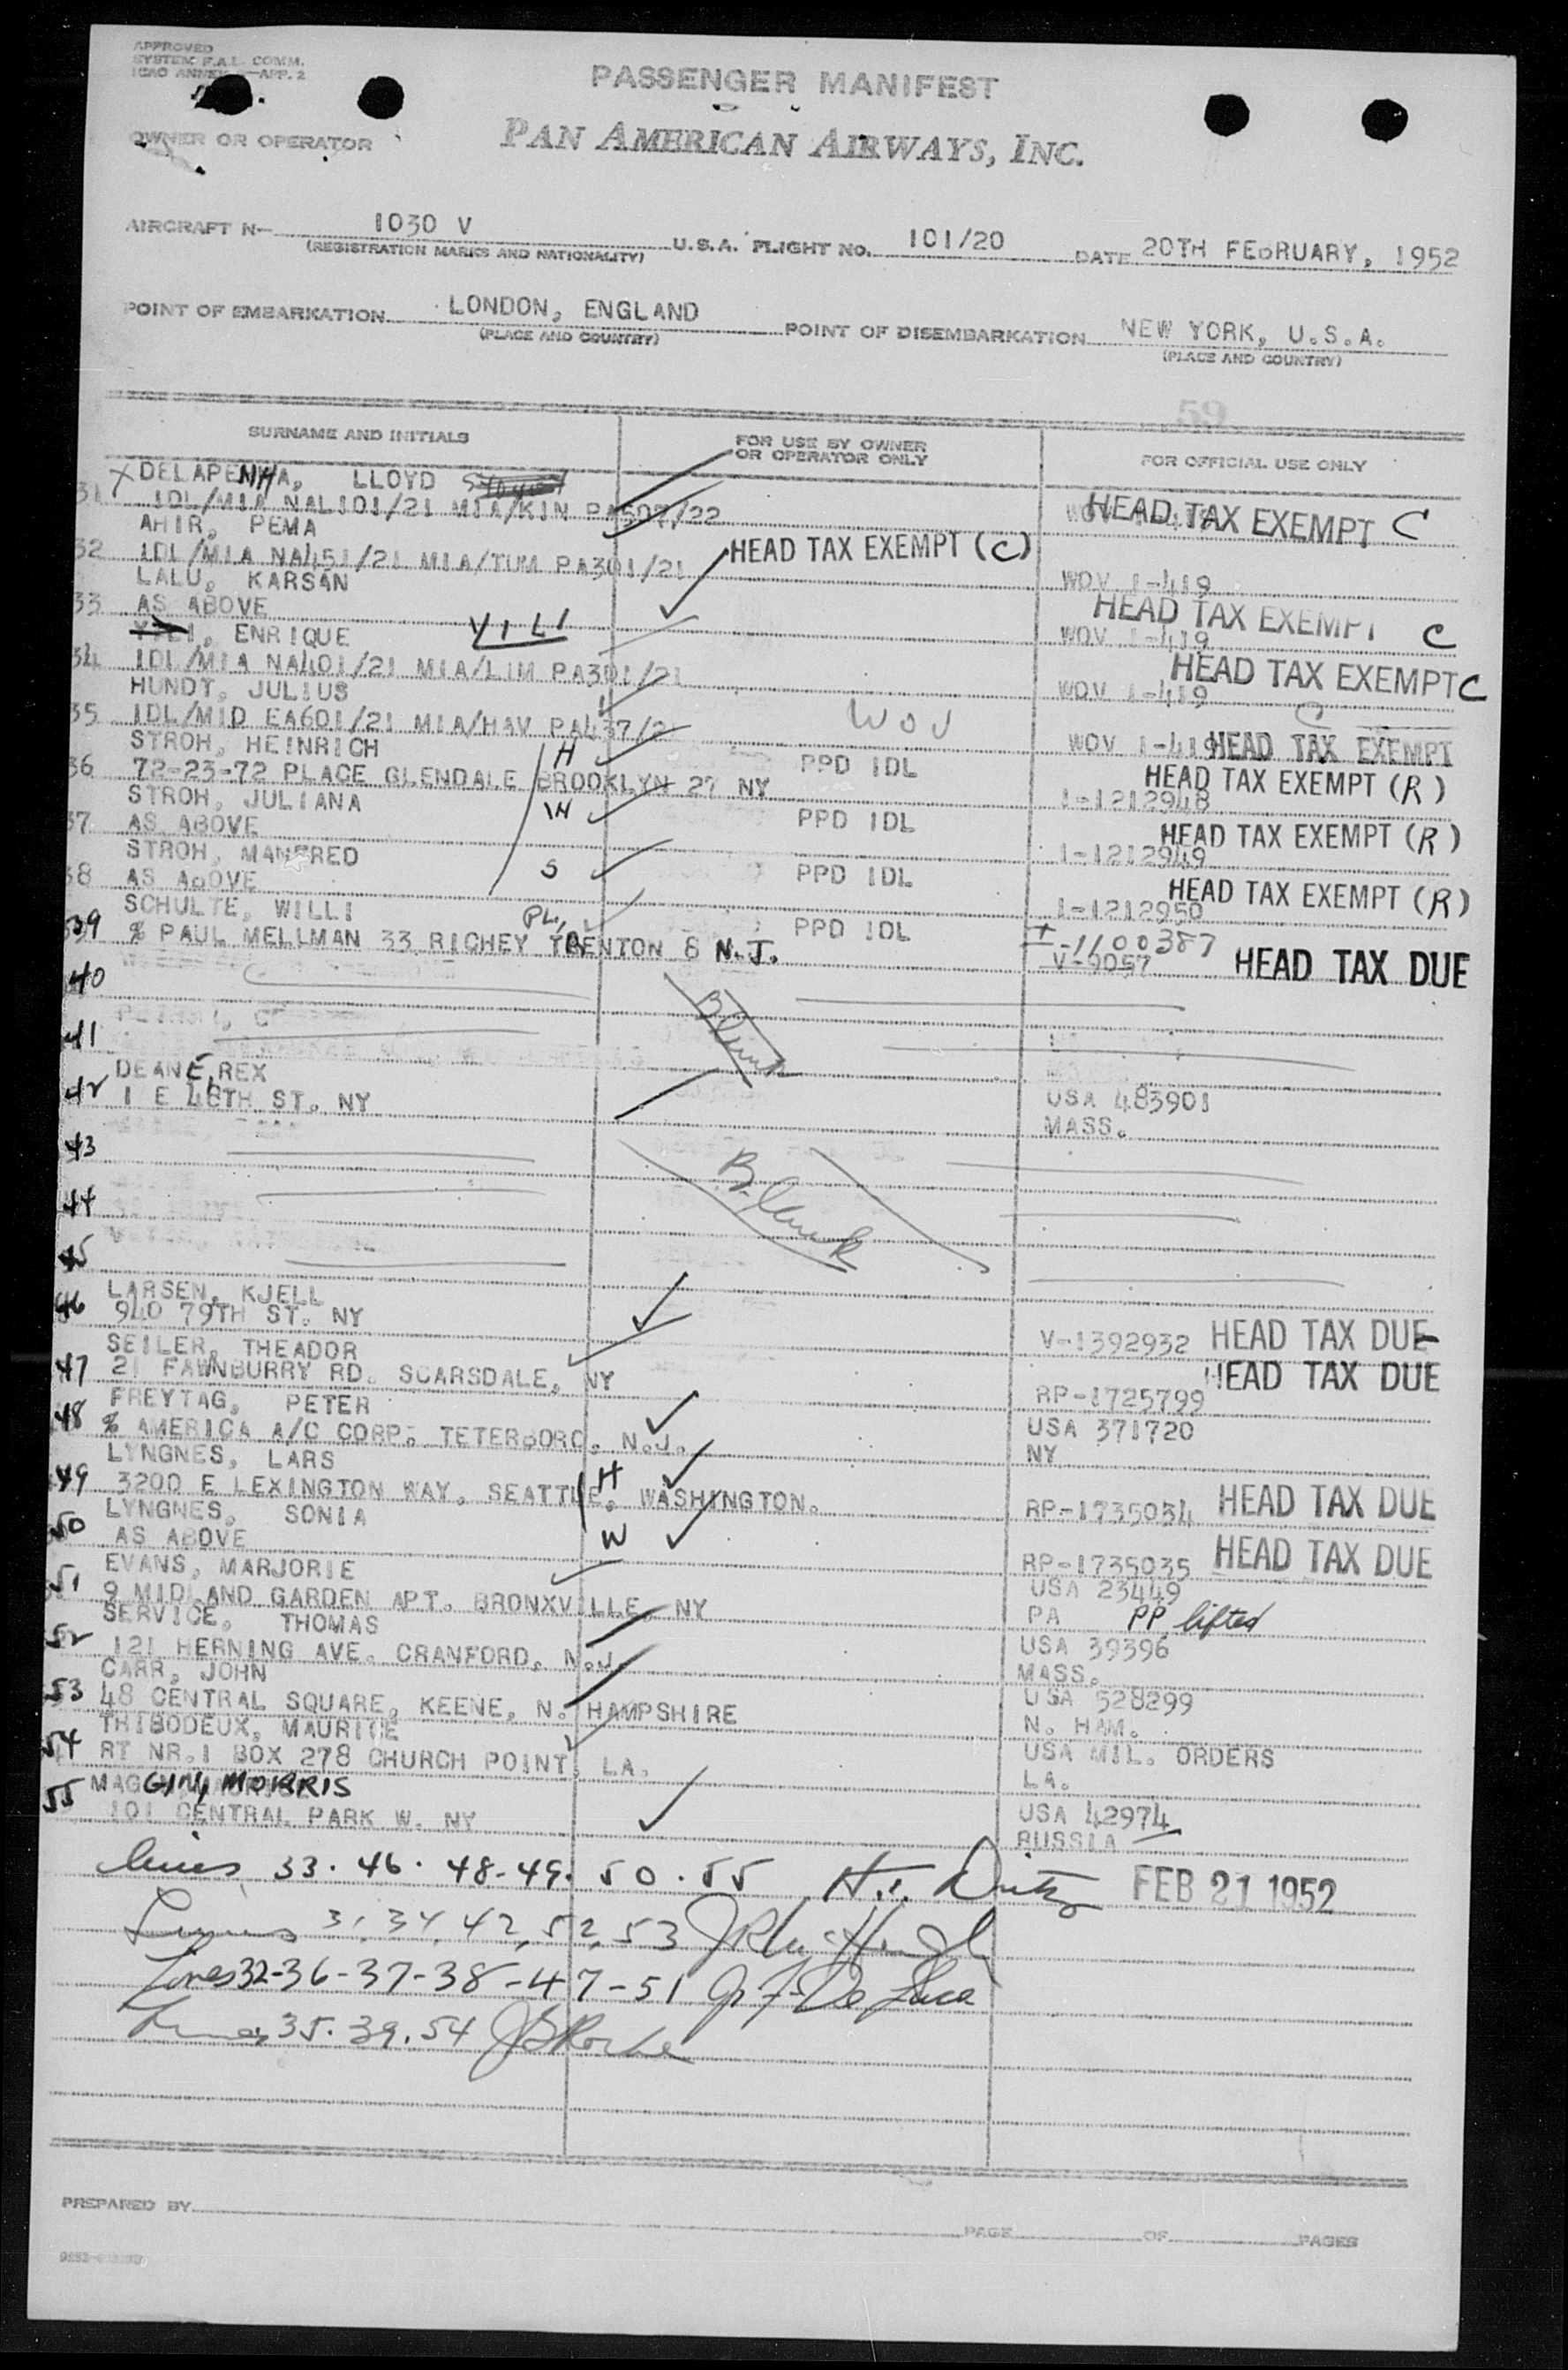 APPROVED
SYSTEM F.A.L. COMM.
ICAO ANNEX APP. 2
PASSENGER MANIFEST
OWNER OR OPERATOR PAN AMERICAN AIRWAYS, INC.
AIRCRAFT N- 1030 V U.S.A. FLIGHT NO. 101/20 DATE 20TH FEBRUARY, 1952
(REGISTRATION MARKS AND NATIONALITY)
POINT OF EMBARKATION LONDON, ENGLAND POINT OF DISEMBARKATION NEW YORK, U.S.A.
(PLACE AND COUNTRY) (PLACE AND COUNTRY)
59
SURNAME AND INITIALS FOR USE BY OWNER OR OPERATOR ONLY FOR OFFICIAL USE ONLY
X DELAPENHA, LLOYD
31 IDL/MIA NAL101/21 MIA/KIN PA507/22 HEAD TAX EXEMPT C
AHIR, PEMA
32 IDL/MIA NA451/21 MIA/TUM PA301/21 HEAD TAX EXEMPT (C) WOV 1-419
LALU, KARSAN
33 AS ABOVE HEAD TAX EXEMPT C
WOV 1-419
ENRIQUE VILI
34 IDL/MIA NA401/21 MIA/LIM PA301/21 HEAD TAX EXEMPT C
WOV 1-419
HUNDT, JULIUS
35 IDL/MID EA601/21 MIA/HAV PA437/2 WOV C
WOV 1-419 HEAD TAX EXEMPT
STROH, HEINRICH H PPD IDL
36 72-23-72 PLACE GLENDALE BROOKLYN 27 NY HEAD TAX EXEMPT (R)
1-1212948
STROH, JULIANA W PPD IDL
37 AS ABOVE HEAD TAX EXEMPT (R)
1-1212949
STROH, MANFRED S PPD IDL
38 AS ABOVE HEAD TAX EXEMPT (R)
1-1212950
SCHULTE, WILLI PL, PPD IDL
39 % PAUL MELLMAN 33 RICHEY TRENTON 8 N.J. I-1100387
V-9057 HEAD TAX DUE
40
Blank
41
DEANE, REX
42 1 E 48TH ST. NY USA 483901
MASS.
43
Blank
44
45
LARSEN, KJELL
46 940 79TH ST. NY V-1392932 HEAD TAX DUE
SEILER, THEADOR
47 21 FAWNBURRY RD. SCARSDALE, NY RP-1725799 HEAD TAX DUE
FREYTAG, PETER USA 371720
48 % AMERICA A/C CORP. TETERBORO, N.J. NY
LYNGNES, LARS H
49 3200 E LEXINGTON WAY, SEATTLE, WASHINGTON. RP-1735034 HEAD TAX DUE
LYNGNES, SONIA
50 AS ABOVE W RP-1735035 HEAD TAX DUE
EVANS, MARJORIE USA 23449
51 9 MIDLAND GARDEN APT. BRONXVILLE, NY PA PP lifted
SERVICE, THOMAS USA 39396
52 121 HERNING AVE. CRANFORD, N.J. MASS.
CARR, JOHN USA 528299
53 48 CENTRAL SQUARE, KEENE, N. HAMPSHIRE N. HAM.
THIBODEUX, MAURICE USA MIL. ORDERS
54 RT NR.1 BOX 278 CHURCH POINT, LA. LA.
MAGGIN, MORRIS USA 42974
55 101 CENTRAL PARK W. NY RUSSIA
Lines 33. 46. 48-49. 50. 55 FEB 21 1952
Lines 31, 34, 42, 52, 53
Lines 32-36-37-38-47-51
Lines 35. 39. 54
PREPARED BY PAGE OF PAGES